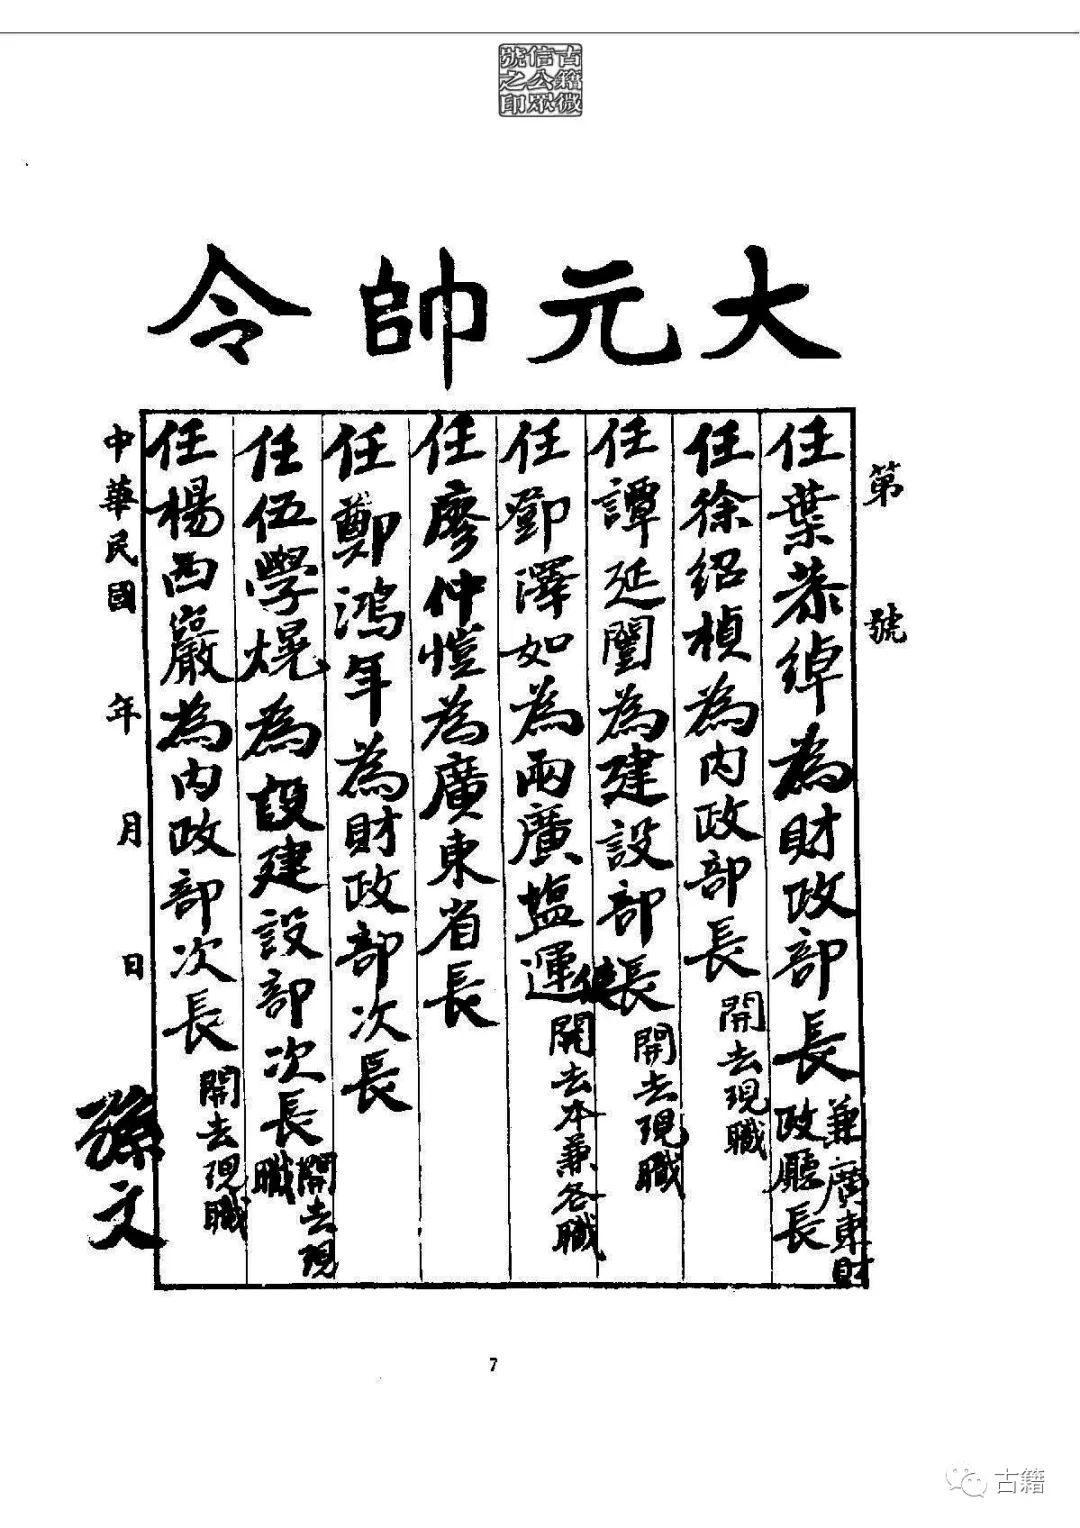 古籍微
信公眾
號之印
大元帥令
第 號
任葉恭綽為財政部長兼廣東財政廳長
任徐紹楨為內政部長開去現職
任譚延闓為建設部長開去現職
任鄧澤如為兩廣塩運使開去本兼各職
任廖仲愷為廣東省長
任鄭鴻年為財政部次長
任伍學熀為設建設部次長開去現職
任楊西巖為內政部次長開去現職
中華民國 年 月 日
孫文
7
古籍